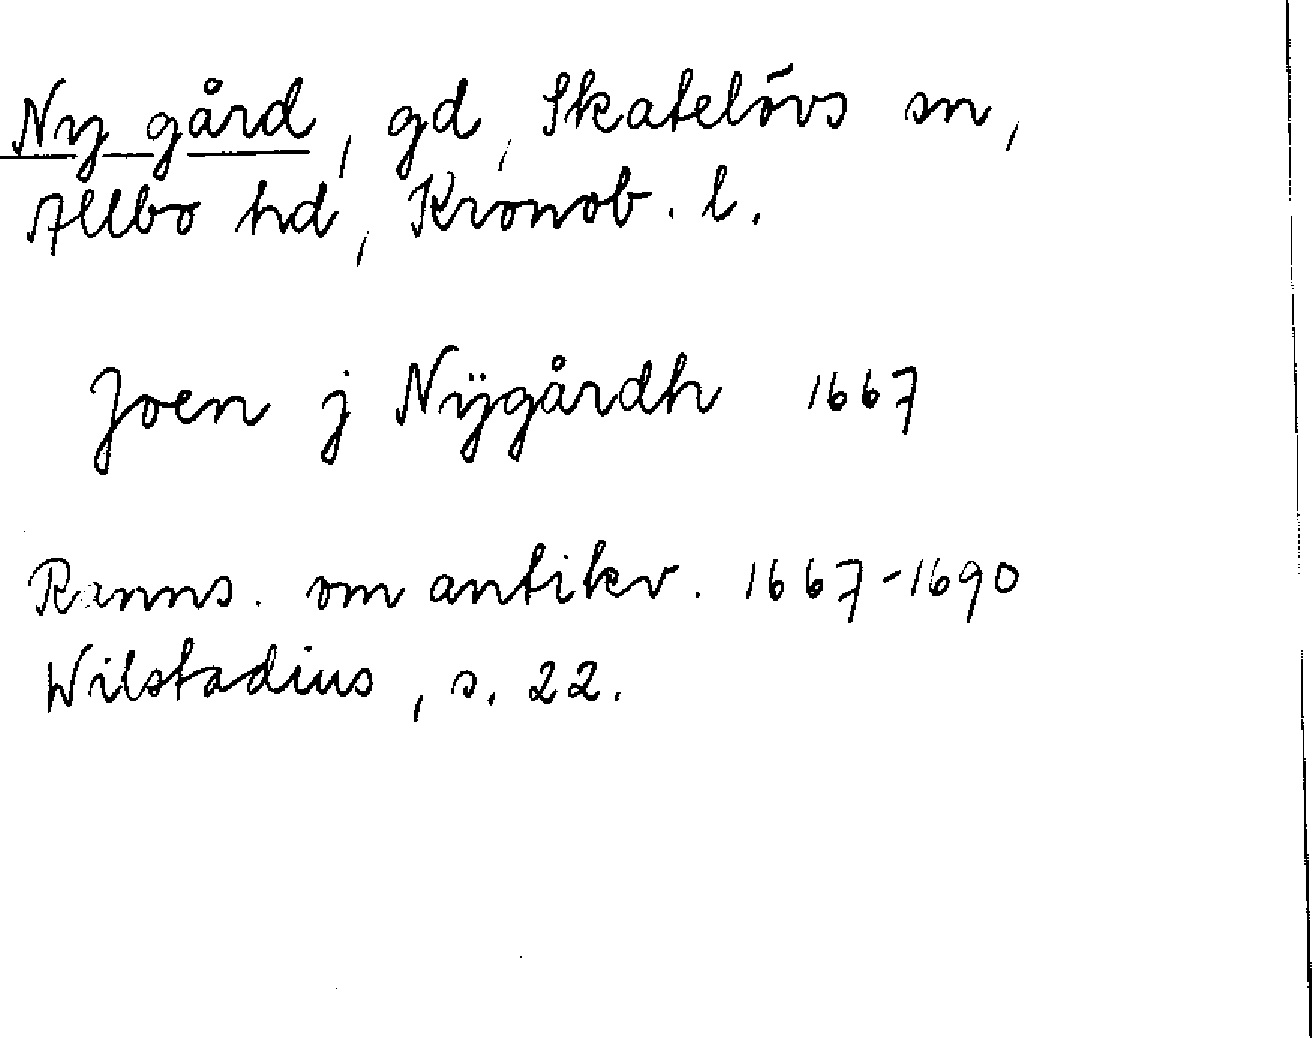 Ny gård, gd, Skatelövs sn,
Allbo hd, Kronob. l.
Joen j Nÿgårdh 1667
Ranns. om antikv. 1667-1690
Wilstadius, s. 22.